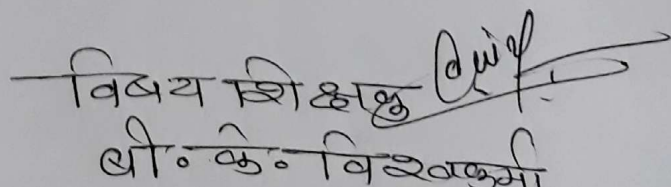 विषय शिक्षक
बी॰ के॰ विश्वकर्मा